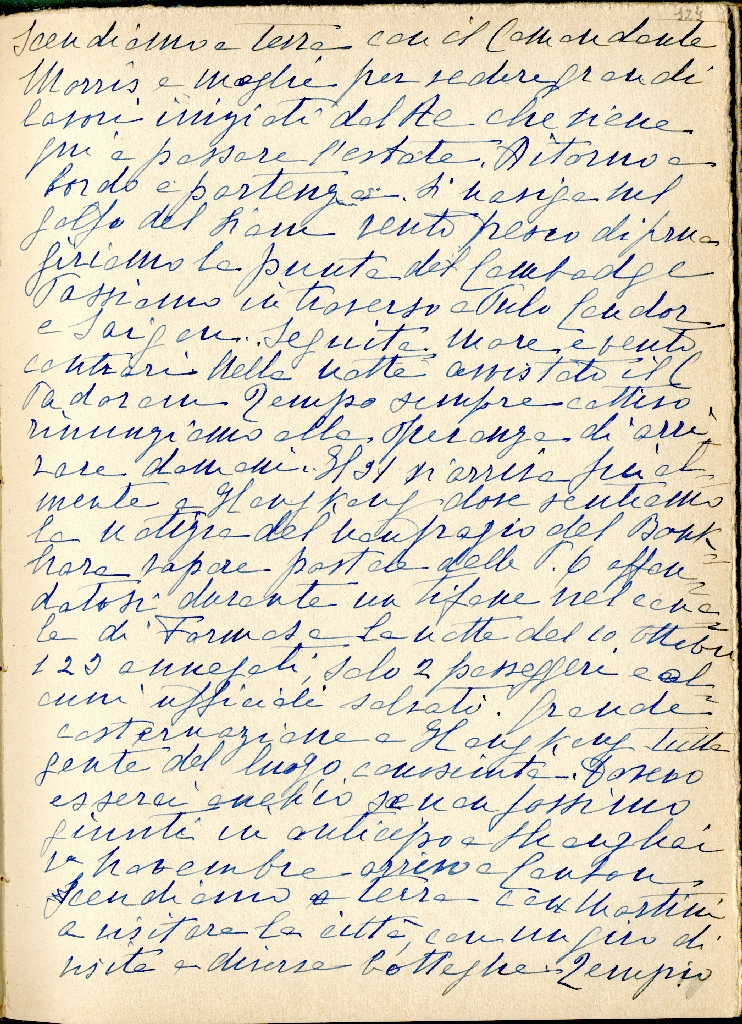 124
Scendiamo a terra con il Comandante
Morris e moglie per vedere grandi
lavori iniziati dal Re che viene
qui a passare l'estate. Ritorno a
bordo e partenza. Si naviga nel
golfo del Siam vento fresco di prua
giriamo la punta del Cambodge
Passiamo in traverso a Pulo Condor
e Saigon. Seguita mare e vento
contrari Nella notte avvistato il C
Padaran Tempo sempre cattivo
rinunziamo alla speranza di arri-
vare domani. Il 21 s'arriva final-
mente a Hong Kong dove sentiamo
la notizia del naufragio del Bouk-
hara vapore postale della P. O affon-
datosi durante un tifone nel cana-
le di Formosa la notte del 10 ottobre
123 annegati, solo 2 passeggeri e al-
cuni ufficiali salvati. Grande
costernazione a Hong Kong tutta
gente del luogo conosciuta. Dovevo
esserci anch'io se non fossimo
giunti in anticipo a Shanghai
1º novembre arrivo a Canton
Scendiamo a terra con Martini
a visitare la città, con un giro di
visite a diverse botteghe. Tempio